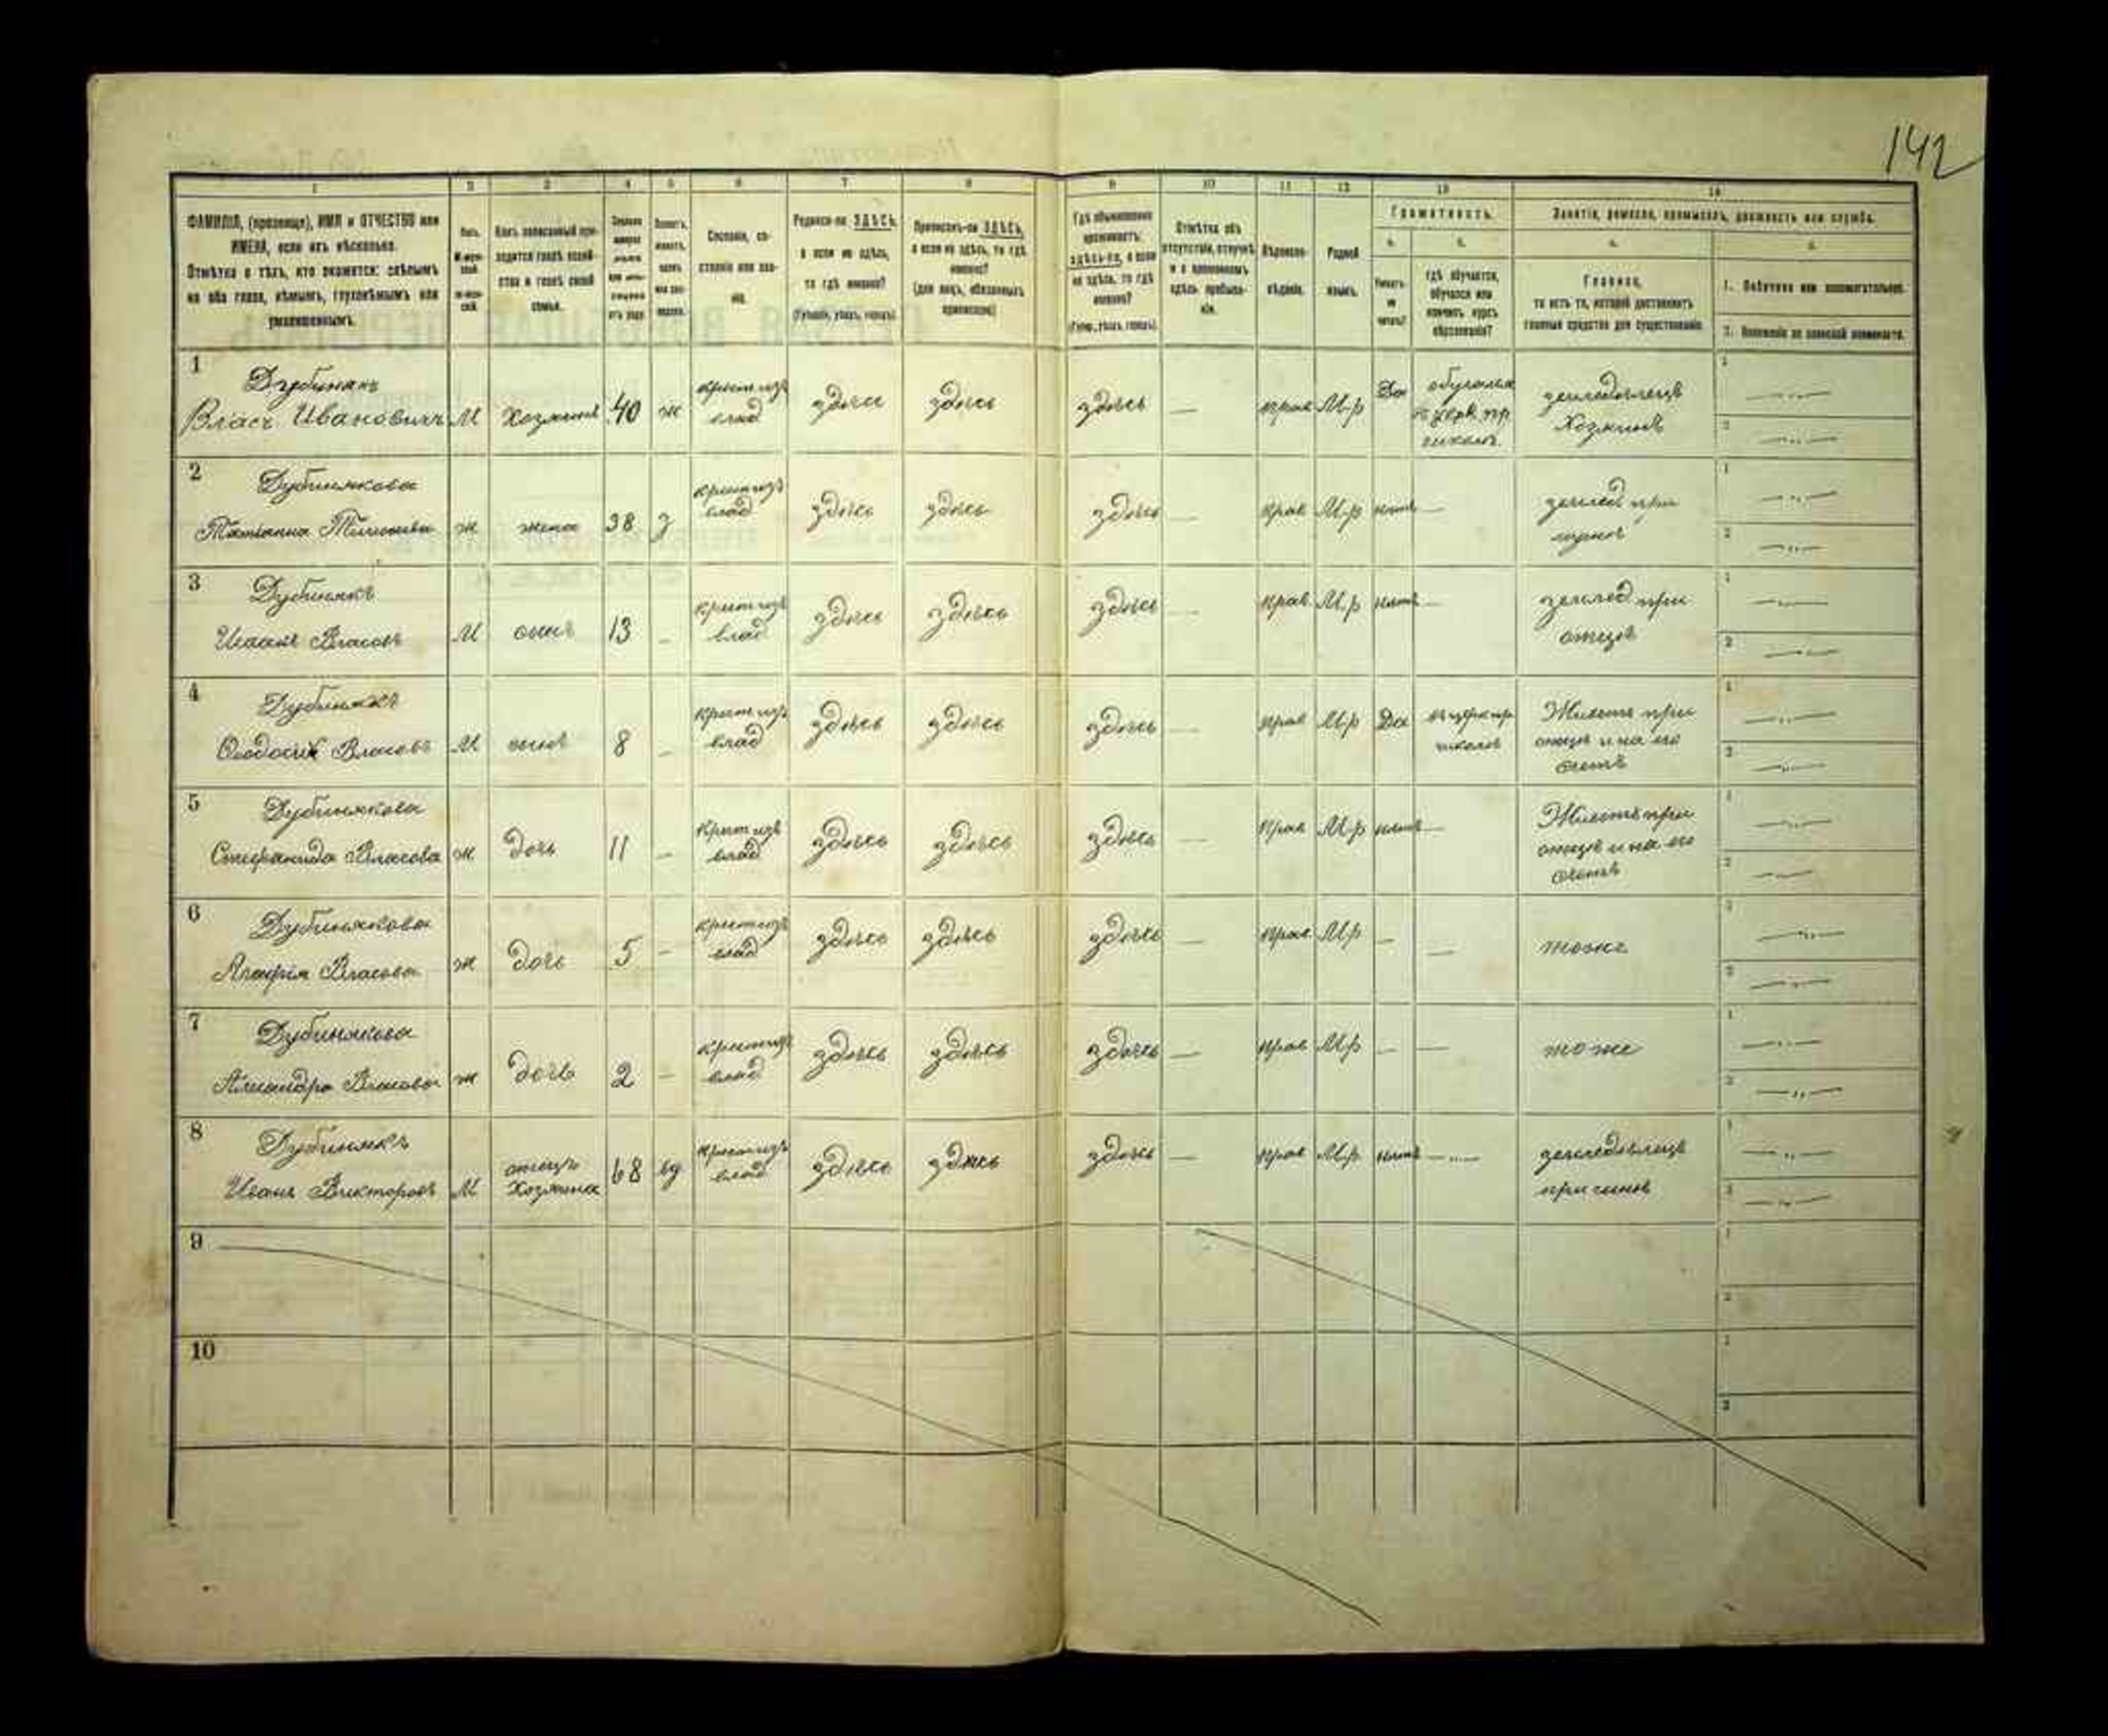 142
1 2 3 4 5 6 7 8 9 10 11 12 13 14
ФАМИЛІЯ, (прозвище), ИМЯ и ОТЧЕСТВО или
ИМЕНА, если ихъ нѣсколько.
Отмѣтка о тѣхъ, кто окажется: слѣпымъ
на оба глаза, нѣмымъ, глухонѣмымъ или
умалишеннымъ.
Полъ.
Какъ записанный при-
ходится главѣ хозяй-
ства и главѣ своей
семьи.
Сословіе, со-
стояніе или зва-
ніе.
Родился-ли ЗДѢСЬ,
а если не здѣсь,
то гдѣ именно?
(Губернія, уѣздъ, городъ)
Приписанъ-ли ЗДѢСЬ,
а если не здѣсь, то гдѣ
именно?
(для лицъ, обязанныхъ
припискою)
Гдѣ обыкновенно
проживаетъ:
здѣсь-ли, а если
не здѣсь, то гдѣ
именно?
(Губер., уѣздъ, городъ).
Отмѣтка объ
отсутствіи, отлучкѣ
и о временномъ
здѣсь пребыва-
ніи.
Вѣроиспо-
вѣданіе.
Родной
языкъ.
Грамотность.
а. б.
Умѣетъ
ли
читать?
гдѣ обучается,
обучался или
кончилъ курсъ
образованія?
Занятіе, ремесло, промыселъ, должность или служба.
а. б.
Главное,
то есть то, которое доставляетъ
главныя средства для существованія.
1. Побочное или вспомогательное.
2. Положеніе по воинской повинности.
1 Дубинякъ
Власъ Ивановичъ М Хозяинъ 40 ж крест изъ влад здѣсь здѣсь здѣсь — прав М.р Да обучался в церк. пр. школѣ земледѣлецъ Хозяинъ
2 Дубинякова
Татьянна ж жена 38 з крест изъ влад здѣсь здѣсь здѣсь — прав М.р нѣтъ — землед при мужѣ
3 Дубинякъ
Иванъ Власовъ М сынъ 13 — крест изъ влад здѣсь здѣсь здѣсь — прав М.р нѣтъ — землед при отцѣ
4 Дубинякъ
Ѳеодосій Власовъ М сынъ 8 — крест изъ влад здѣсь здѣсь здѣсь — прав М.р Да въ церк пр школѣ Живетъ при отцѣ и на его счетъ
5 Дубинякова
Стефанида Власова ж дочь 11 — крест изъ влад здѣсь здѣсь здѣсь — прав М.р нѣтъ — Живетъ при отцѣ и на его счетъ
6 Дубинякова
Агафія Власова ж дочь 5 — крест изъ влад здѣсь здѣсь здѣсь — прав М.р — — тоже
7 Дубинякова
Александра Власова ж дочь 2 — крест изъ влад здѣсь здѣсь здѣсь — прав М.р — — тоже
8 Дубинякъ
Иванъ Викторовъ М отецъ Хозяина 68 вд крест изъ влад здѣсь здѣсь здѣсь — прав М.р нѣтъ — земледѣлецъ при сынѣ
9
10